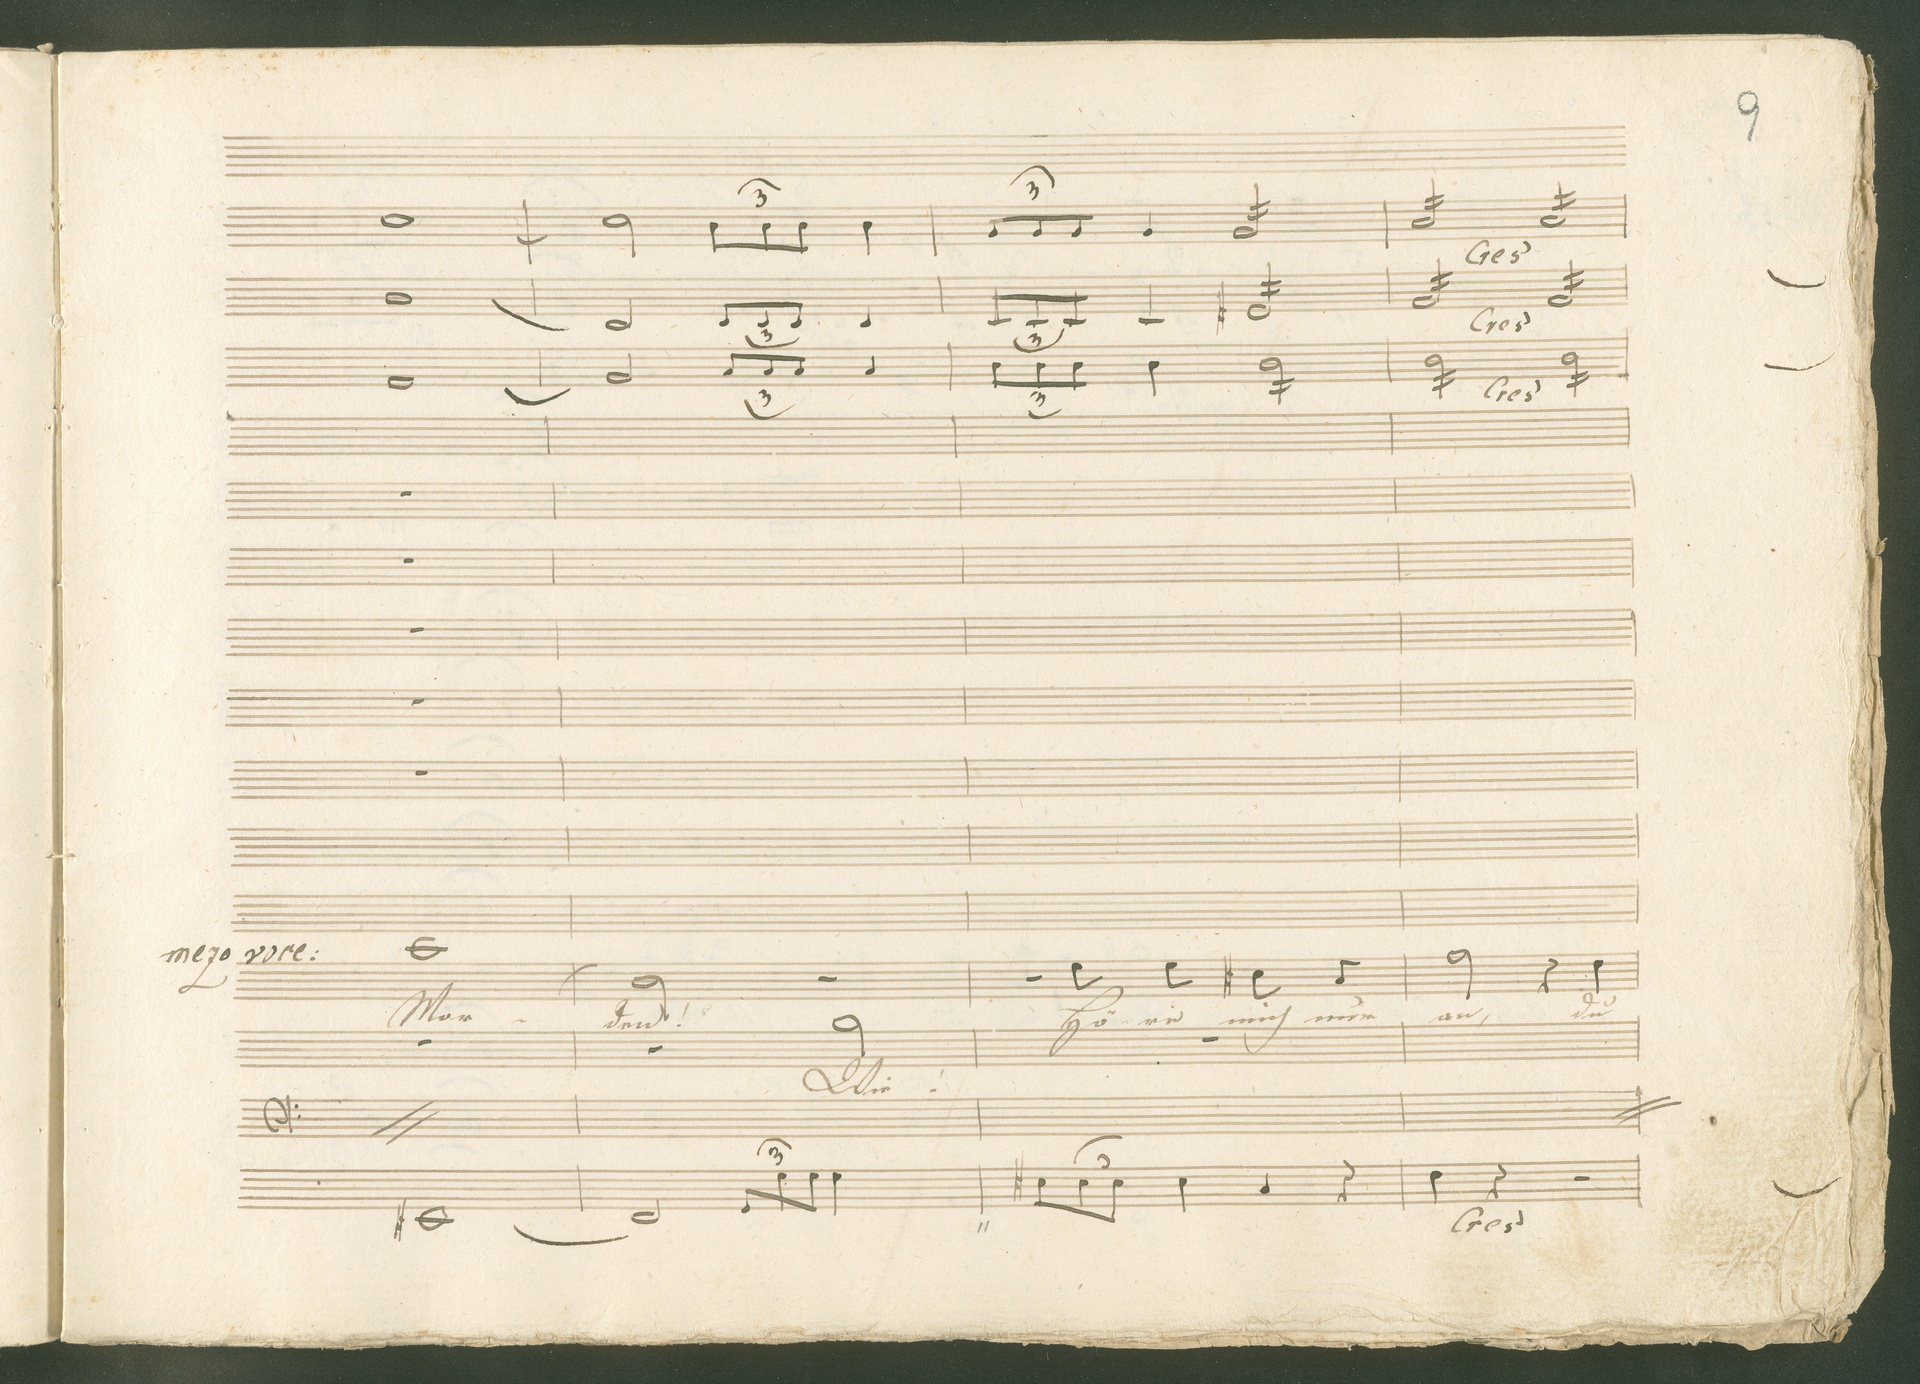 9
3 3
Cres
Cres
3 3
Cres
3 3
mezo voce:
Mor - den! Hö - re mich nur an, du
Wie!
3 3
Cres